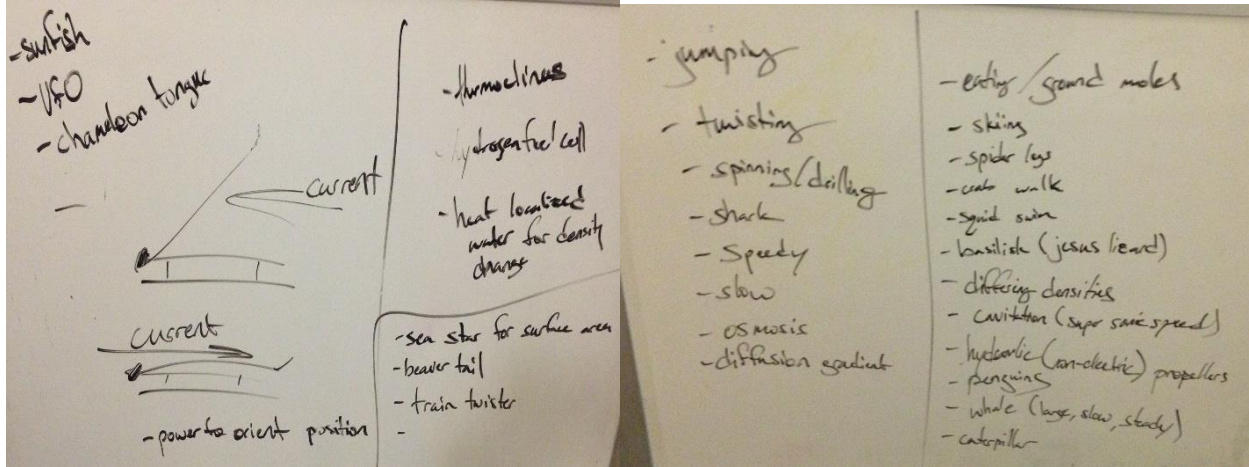 - sunfish
- UFO
- chameleon tongue
current
-
current
- power to orient position
- thermoclines
- hydrogen fuel cell
- heat localized
water for density
change
- sea star for surface area
- beaver tail
- train twister
-
- jumping
- twisting
- spinning/drilling
- shark
- speedy
- slow
- osmosis
- diffusion gradient
- eating/ground moles
- skiing
- spider legs
- crab walk
- squid swim
- basilisk (jesus lizard)
- differing densities
- cavitation (super sonic speed)
- hydraulic (non-electric) propellers
- penguins
- whale (large, slow, steady)
- caterpillar